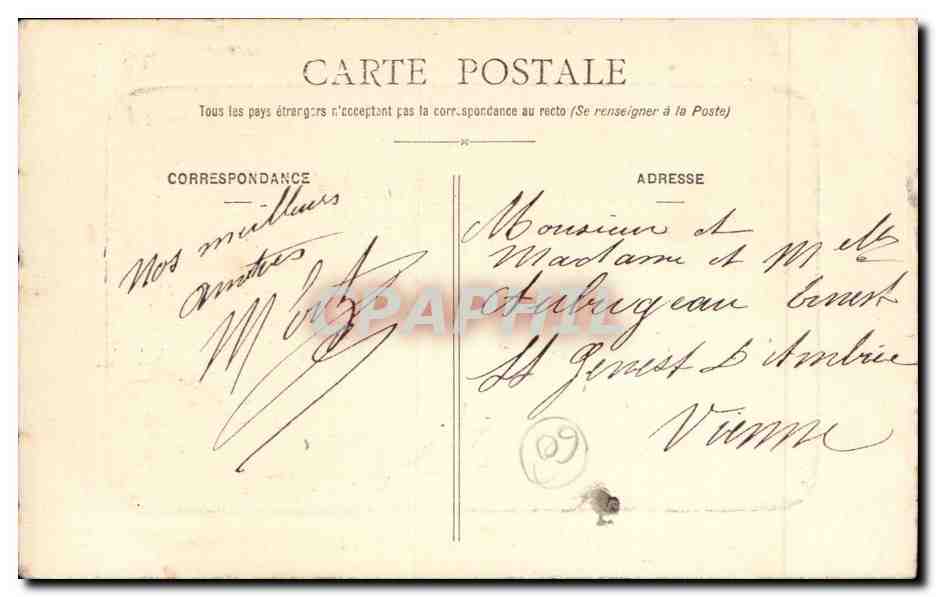 CARTE POSTALE
Tous les pays étrangers n'acceptent pas la correspondance au recto (Se renseigner à la Poste)
CORRESPONDANCE
Nos meilleurs
amitiés
ADRESSE
Monsieur et
Madame et Melle
Aubugeau Ernest
St Genest d'Ambiée
Vienne
09
CPAPHIL